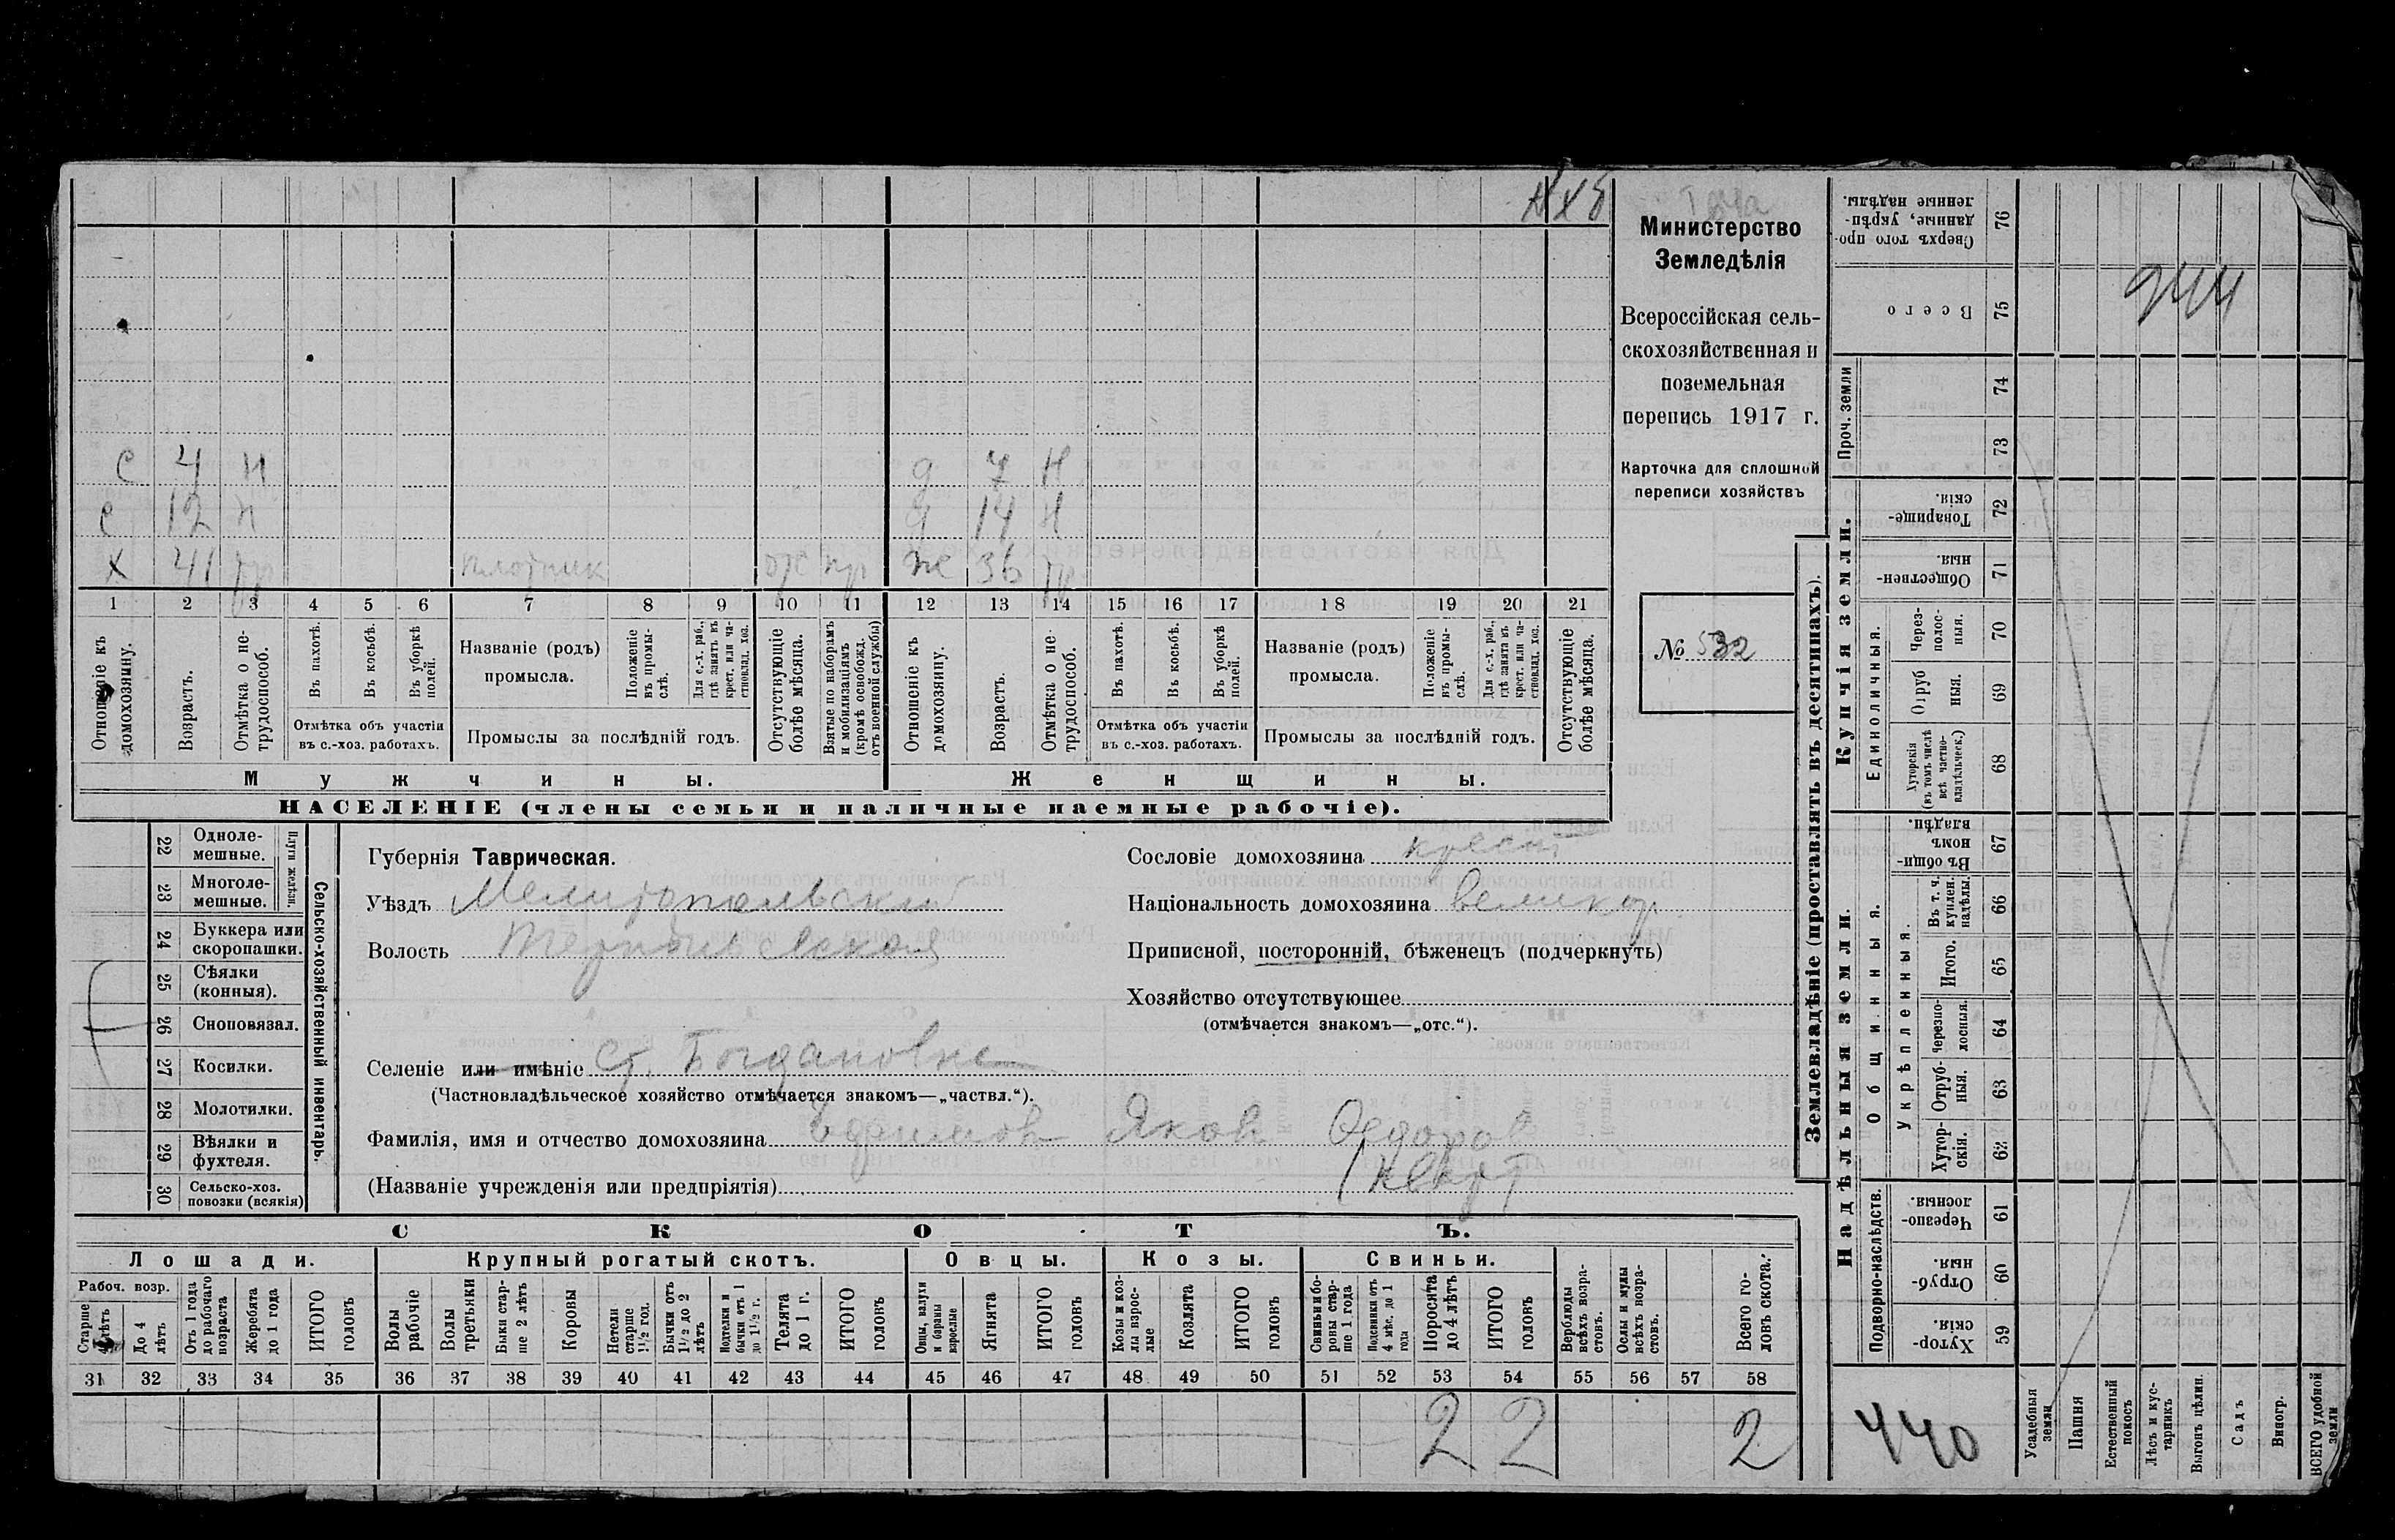 Министерство
Земледѣлія
Всероссійская сель-
скохозяйственная и
поземельная
перепись 1917 г.
Карточка для сплошной
переписи хозяйствъ
№ 532
с 4 н д 7 н
с 12 н д 14 н
х 41 тр плотник отс пр ж 36 тр
1 2 3 4 5 6 7 8 9 10 11 12 13 14 15 16 17 18 19 20 21
Отношеніе къ домохозяину.
Возрастъ.
Отмѣтка о не-
трудоспособ.
Въ пахотѣ.
Въ косьбѣ.
Въ уборкѣ
полей.
Отмѣтка объ участіи
въ с.-хоз. работахъ.
Названіе (родъ)
промысла.
Положеніе
въ промы-
слѣ.
Для с.-х. раб.,
гдѣ занятъ въ
крест. или ча-
стновлад. хоз.
Промыслы за послѣдній годъ.
Отсутствующіе
болѣе мѣсяца.
Взятые по наборамъ
и мобилизаціямъ
(кромѣ освобожд.
отъ военной службы)
Отношеніе къ
домохозяину.
Возрастъ.
Отмѣтка о не-
трудоспособ.
Въ пахотѣ.
Въ косьбѣ.
Въ уборкѣ
полей.
Отмѣтка объ участіи
въ с.-хоз. работахъ.
Названіе (родъ)
промысла.
Положеніе
въ промы-
слѣ.
Для с.-х. раб.,
гдѣ занята въ
крест. или ча-
стновлад. хоз.
Промыслы за послѣдній годъ.
Отсутствующіе
болѣе мѣсяца.
Мужчины.
Женщины.
НАСЕЛЕНІЕ (члены семьи и наличные наемные рабочіе).
22 Одноле-
мешные.
23 Многоле-
мешные.
Плуги желѣзн.
24 Буккера или
скоропашки.
25 Сѣялки
(конныя).
26 Сноповязал.
27 Косилки.
28 Молотилки.
29 Вѣялки и
фухтеля.
30 Сельско-хоз.
повозки (всякія)
Сельско-хозяйственный инвентарь.
Губернія Таврическая.
Уѣздъ Мелитопольский
Волость
Сословіе домохозяина крест
Національность домохозяина великор.
Приписной, посторонній, бѣженецъ (подчеркнуть)
Хозяйство отсутствующее
(отмѣчается знакомъ—„отс.“).
Селеніе или имѣніе ст. Богдановке
(Частновладѣльческое хозяйство отмѣчается знакомъ—„частвл.“).
Фамилія, имя и отчество домохозяина Ефимов Яков Федоров
(Названіе учрежденія или предпріятія) (кварт
СКОТЪ.
Лошади.
Крупный рогатый скотъ.
Овцы.
Козы.
Свиньи.
Рабоч. возр.
Старше
4 лѣтъ
До 4
лѣтъ
Отъ 1 года
до рабочаго
возраста
Жеребята
до 1 года
ИТОГО
головъ
Волы
рабочіе
Волы
третьяки
Быки стар-
ше 2 лѣтъ
Коровы
Нетели
старше
1½ год.
Бычки отъ
1½ до 2
лѣтъ
Подтелки и
бычки отъ 1
до 1½ г.
Телята
до 1 г.
ИТОГО
головъ
Овцы, валухи
и бараны
взрослые
Ягнята
ИТОГО
головъ
Козы и коз-
лы взрос-
лые
Козлята
ИТОГО
головъ
Свиньи и бо-
ровы стар-
ше 1 года
Подсвинки отъ
4 мѣс. до 1
года
Поросята
до 4 лѣтъ
ИТОГО
головъ
Верблюды
всѣхъ возра-
стовъ.
Ослы и мулы
всѣхъ возра-
стовъ.
Всего го-
ловъ скота.
31 32 33 34 35 36 37 38 39 40 41 42 43 44 45 46 47 48 49 50 51 52 53 54 55 56 57 58
2 2 2
Землевладѣніе (проставлять въ десятинахъ).
Купчія земли.
Надѣльныя земли.
Сверхъ того про-
данные, укрѣп-
ленные надѣлы.
76
Всего
75
244
Проч. земли
74
73
Товарище-
скія.
72
Обществен-
ныя.
71
Единоличныя.
Через-
полос-
ныя.
70
Отруб
ныя.
69
Хуторскія
(въ томъ числѣ
всѣ частно-
владѣльческ.)
68
Общинныя.
Въ общи-
номъ
владѣн.
67
Укрѣпленныя.
Въ т. ч.
куплен.
надѣлы.
66
Итого.
65
Черезпо-
лосныя.
64
Отруб-
ныя.
63
Хутор-
скія.
62
Подворно-наслѣдств.
Черезпо-
лосныя
61
Отруб-
ныя.
60
Хутор-
скія.
59
440
Усадебныя
земли
Пашня
Естественный
покосъ
Лѣсъ и кус-
тарникъ
Выгонъ цѣлин.
Садъ
Виногр.
ВСЕГО удобной
земли